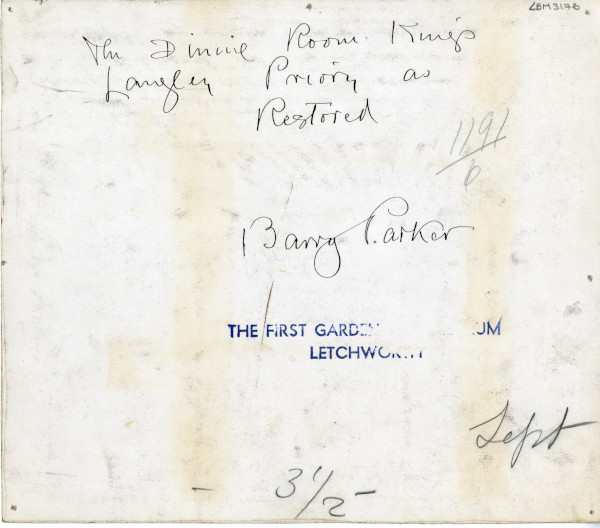 LBM3178
The Dining Room Kings
Langley Priory as
Restored
1191/6
Barry Parker
THE FIRST GARDEN UM
LETCHWORTH
Sept
- 3 1/2 -